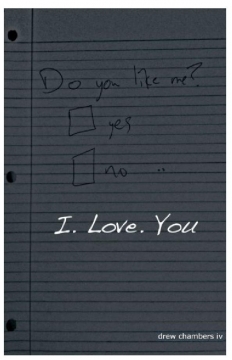 Do you like me?
yes
no
I. Love. You
drew chambers iv